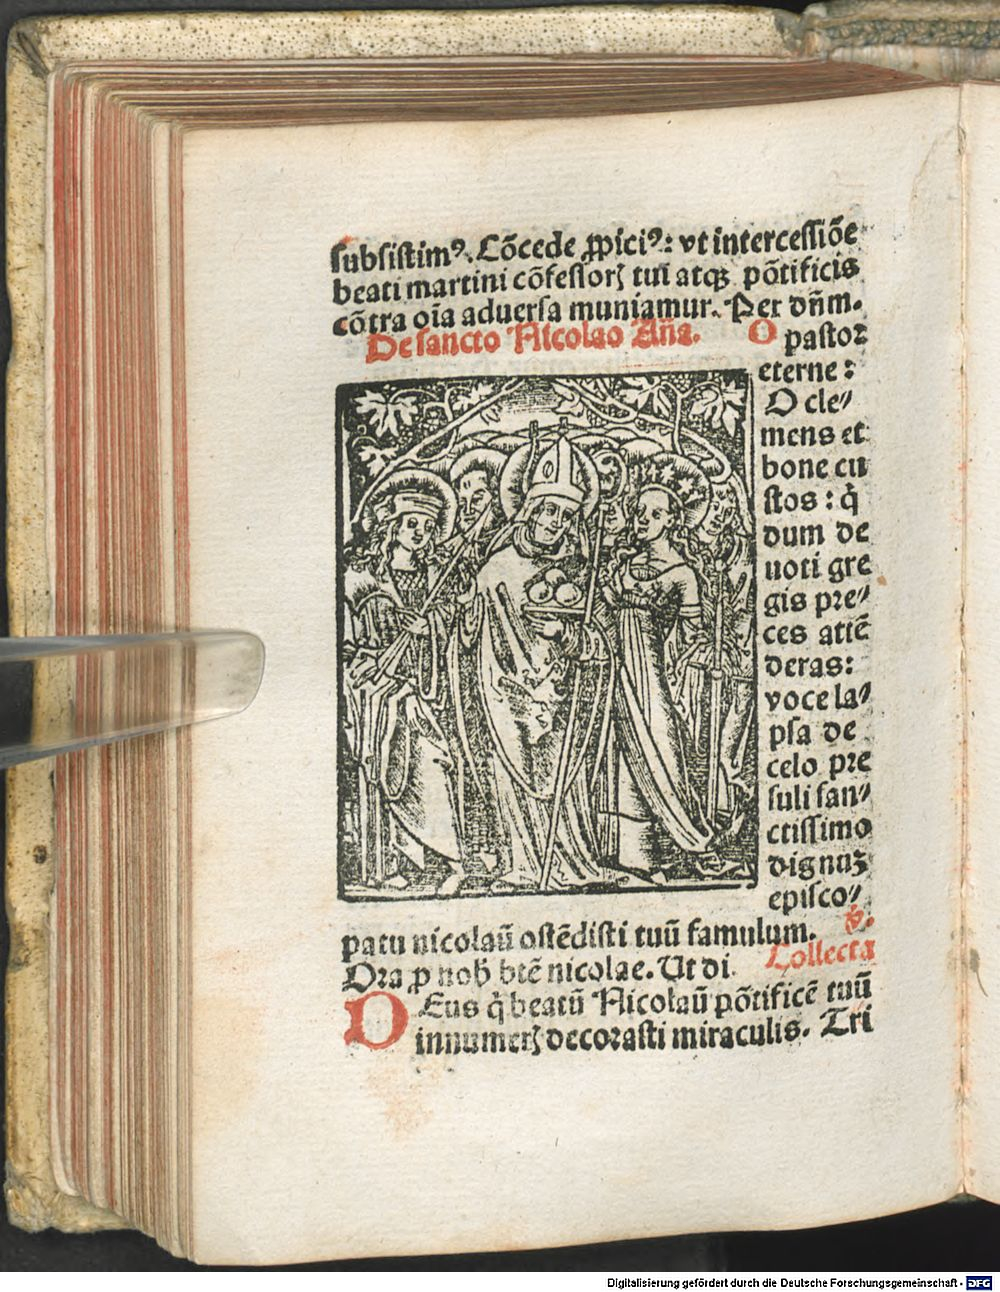 subsistimꝰ. Cõcede ꝓpiciꝰ: vt intercessiõe
beati martini cõfessorꝭ tui atqꝫ põtificis
cõtra oĩa aduersa muniamur. Per dñm.
De sancto Nicolao Añа. O pastor
eterne:
O cle⸗
mens et
bone cu
stos: q̇
dum de
uoti gre
gis pre⸗
ces attẽ
deras:
voce la⸗
psa de
celo pre
suli san⸗
ctissimo
dignuꝫ
episco⸗
patu nicolaũ ostẽdisti tuũ famulum. ꝟ.
Ora ꝓ nob̃ btẽ nicolae. Ut di. Collecta
DEus q̇ beatũ Nicolaũ põtificẽ tuũ
innumerꝭ decorasti miraculis. Tri
Digitalisierung gefördert durch die Deutsche Forschungsgemeinschaft - DFG